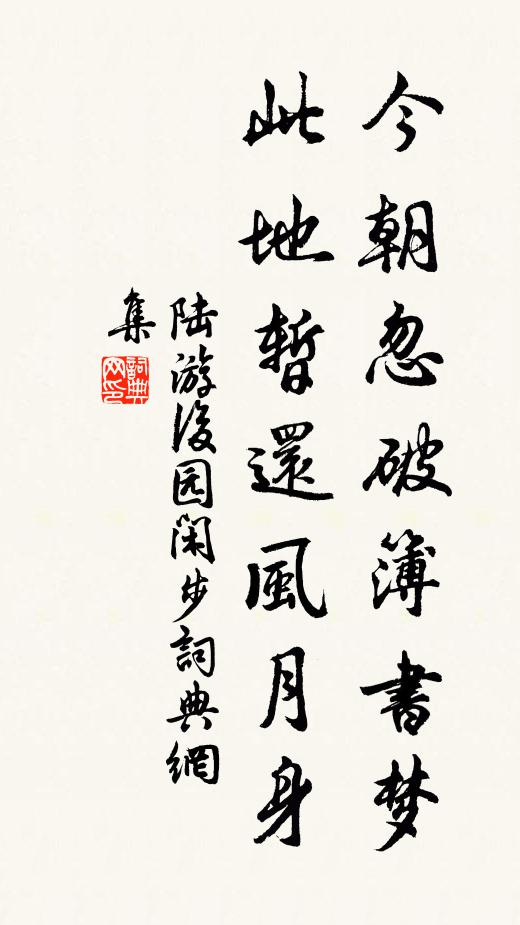 今朝忽破簿書梦
此地暫還風月身
陆游後园闲步詞典網
集
詞典
网印